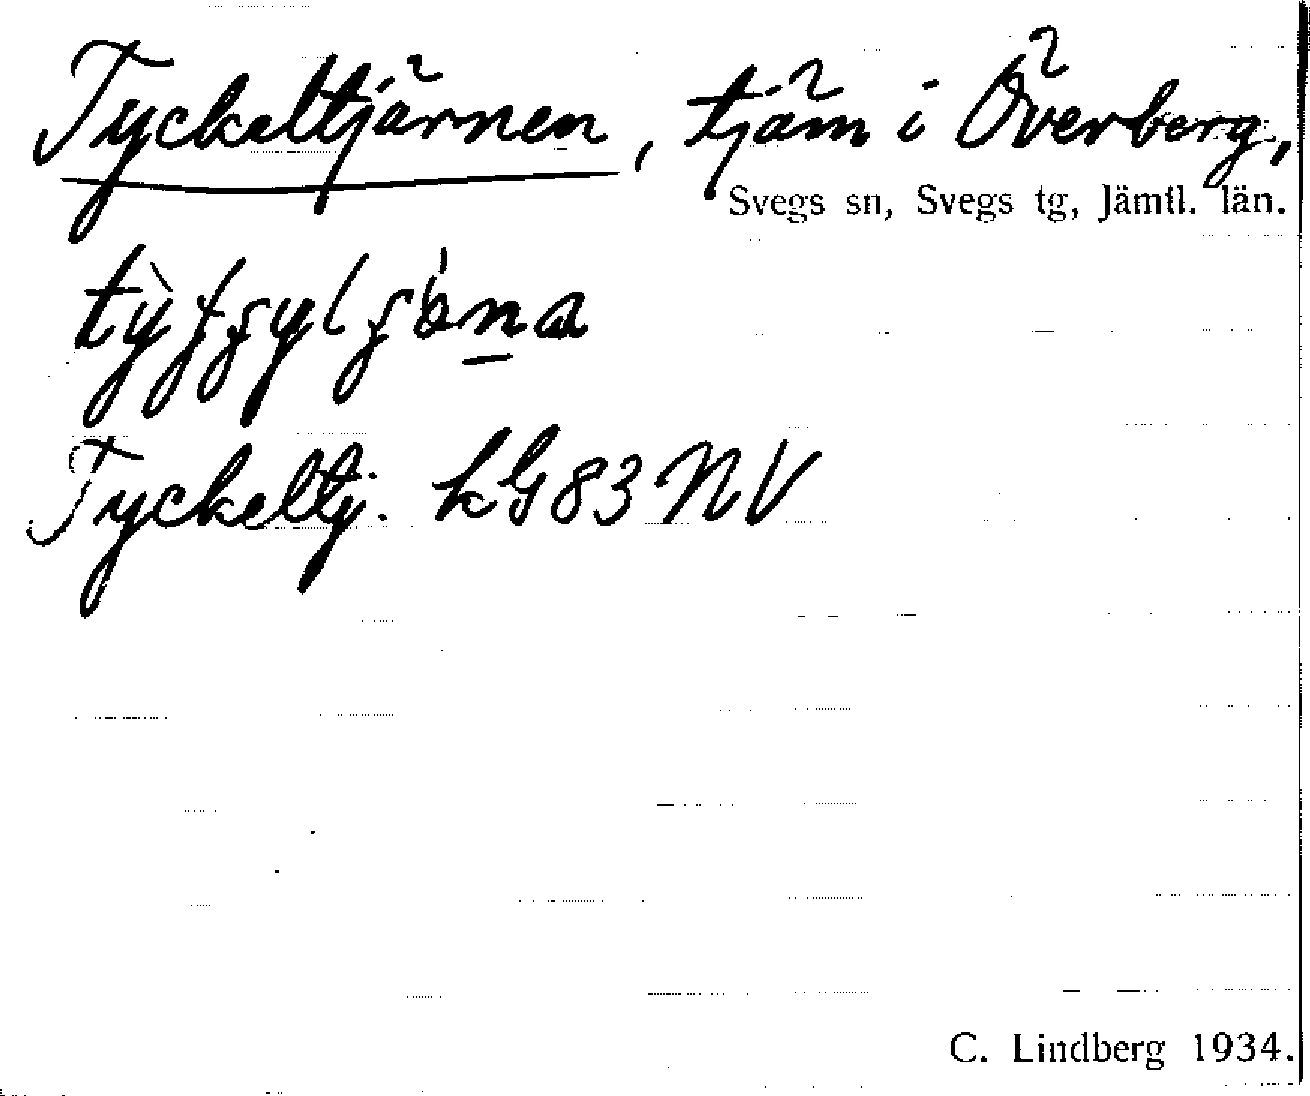 Tyckeltjärnen, tjärn i Överberg,
Svegs sn, Svegs tg, Jämtl. län.
Tyckeltj. kG83NV
C. Lindberg 1934.